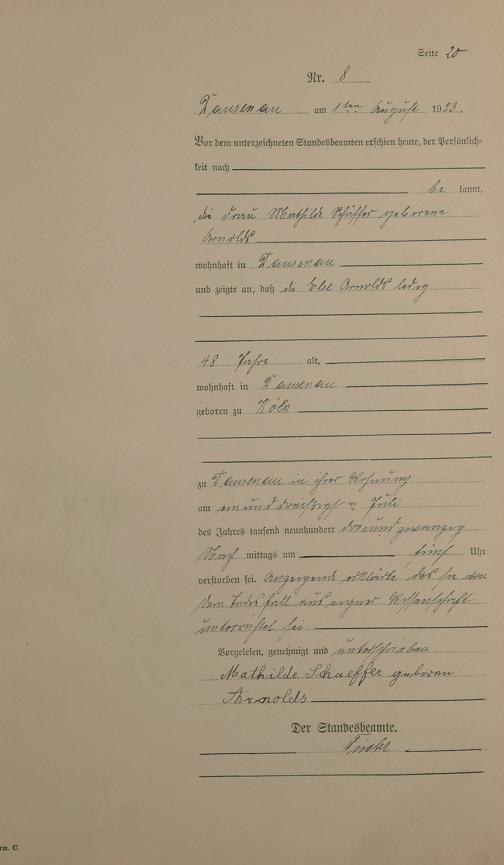 Seite 20
Nr. 8
Dausenau am 1ten August 1923.
Vor dem unterzeichneten Standesbeamten erschien heute, der Persönlich-
keit nach
be kannt,
die Frau Mathilde Schäffer geborene
Arnolds
wohnhaft in Dausenau
und zeigte an, daß die Else Arnolds ledig
48 Jahre alt,
wohnhaft in Dausenau
geboren zu Köln
zu Dausenau in ihrer Wohnung
am ein und dreißigsten Juli
des Jahres tausend neunhundert dreiundzwanzig
Nach mittags um fünf Uhr
verstorben sei. Anzeigende erklärte das sie von
dem Todesfall aus eigner Wissenschaft
unterrichtet sei
Vorgelesen, genehmigt und unterschrieben
Mathilde Schaeffer geboren
Arnolds
Der Standesbeamte.
rm. C.